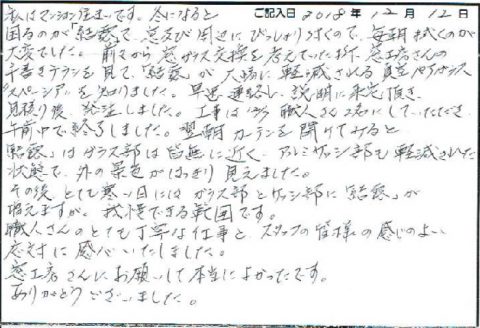 ご記入日 2018年 12月 12日
私はマンション住まいです。冬になると
困るのが「結露」で、窓及び周辺にびっしりつくので、毎朝拭くのが
大変でした。前々から窓ガラス交換を考えていた折、窓工房さんの
手書きチラシを見て、「結露」が大幅に軽減される真空ペアガラス
"スペーシア"を知りました。早速連絡し、説明に来宅頂き、
見積り後、発注しました。工事は 職人さん2名にしていただき、
午前中で終了しました。翌朝カーテンを開けてみると
「結露」はガラス部は皆無に近く、アルミサッシ部も軽減された
状態で、外の景色がはっきり見えました。
その後とても寒い日にはガラス部とサッシ部に「結露」が
増えますが、我慢できる範囲です。
職人さんのとても丁寧な仕事と、スタッフの皆様の感じのよい
応対に感心いたしました。
窓工房さんにお願いして本当によかったです。
ありがとうございました。